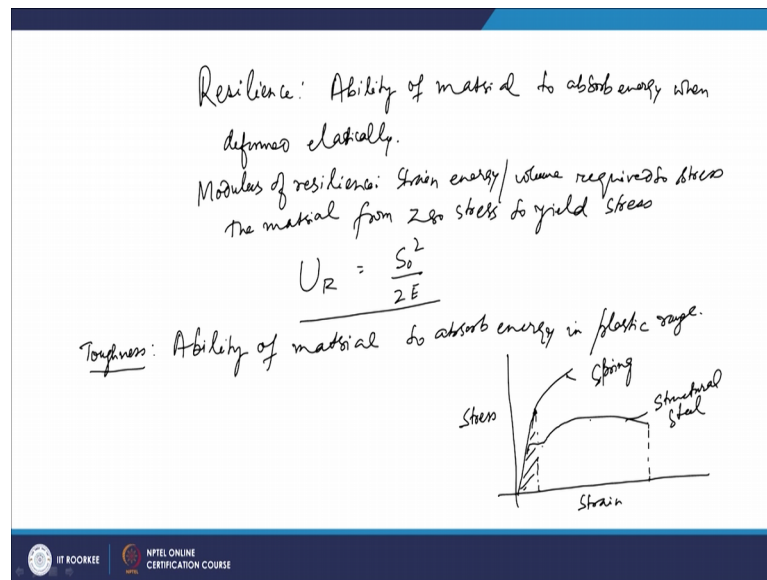 Resilience: Ability of material to absorb energy when
deformed elastically.
Modulus of resilience: Strain energy/volume required to stress
the material from zero stress to yield stress
U_R = S₀² / 2E
Toughness: Ability of material to absorb energy in plastic range.
Spring
Structural
Steel
Stress
Strain
IIT ROORKEE
NPTEL ONLINE
CERTIFICATION COURSE